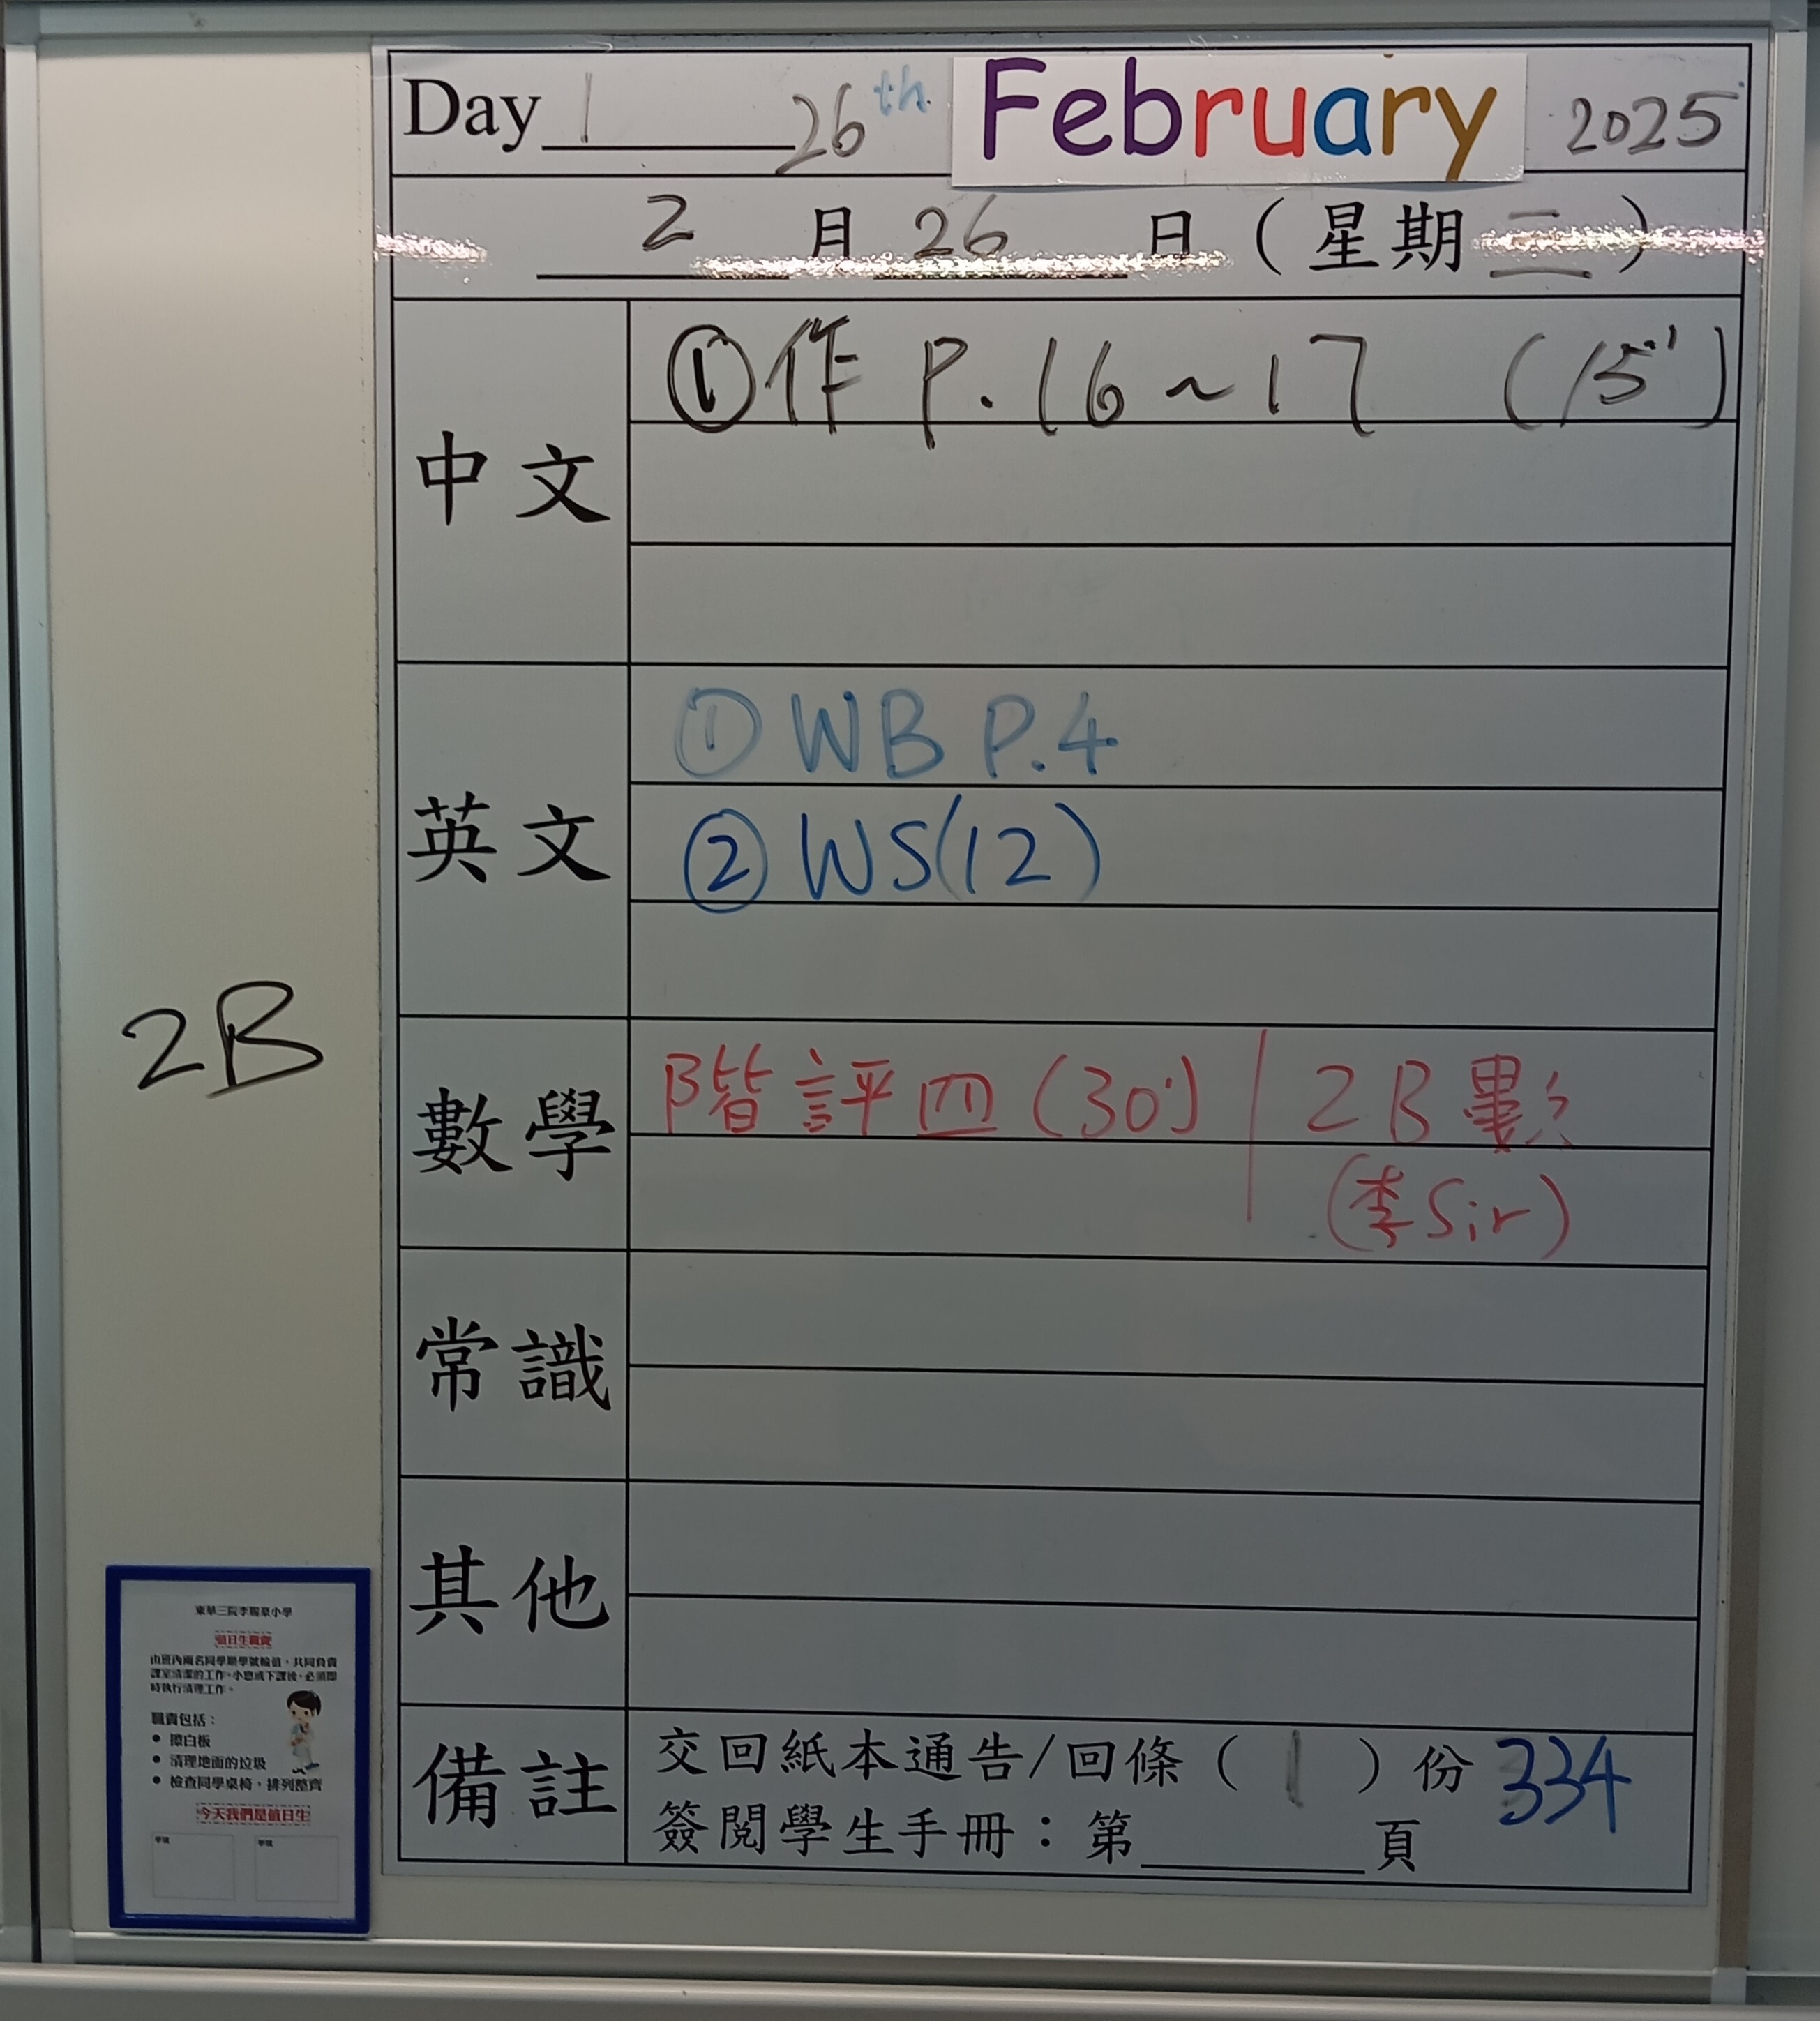 Day 1 26th February 2025
2 月 26 日 (星期三)
中文
①作 P.16~17 (15')
英文
① WB P.4
② WS(12)
2B
數學
階評四(30') | 2B數
(李Sir)
常識
其他
備註
交回紙本通告/回條( 1 )份 334
簽閱學生手冊：第 頁
東華三院李賜豪小學
值日生職責
由班內兩名同學順學號輪值，共同負責
課室清潔的工作。小息或下課後，必須即
時執行清理工作。
職責包括：
• 擦白板
• 清理地面的垃圾
• 檢查同學桌椅，排列整齊
今天我們是值日生
學號 學號